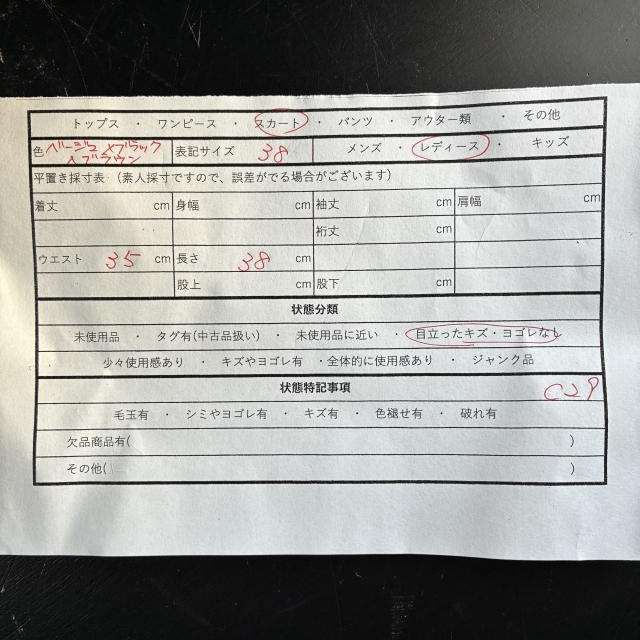 トップス ・ ワンピース ・ スカート ・ パンツ ・ アウター類 ・ その他
色 ベージュ×ブラック 表記サイズ 38 メンズ ・ レディース ・ キッズ
×ブラウン
平置き採寸表 (素人採寸ですので、誤差がでる場合がございます)
着丈 cm 身幅 cm 袖丈 cm 肩幅 cm
裄丈 cm
ウエスト 35 cm 長さ 38 cm
股上 cm 股下 cm
状態分類
未使用品 ・ タグ有(中古品扱い) ・ 未使用品に近い ・ 目立ったキズ・ヨゴレなし
少々使用感あり ・ キズやヨゴレ有 ・全体的に使用感あり ・ ジャンク品
状態特記事項 C29
毛玉有 ・ シミやヨゴレ有 ・ キズ有 ・ 色褪せ有 ・ 破れ有
欠品商品有( )
その他( )